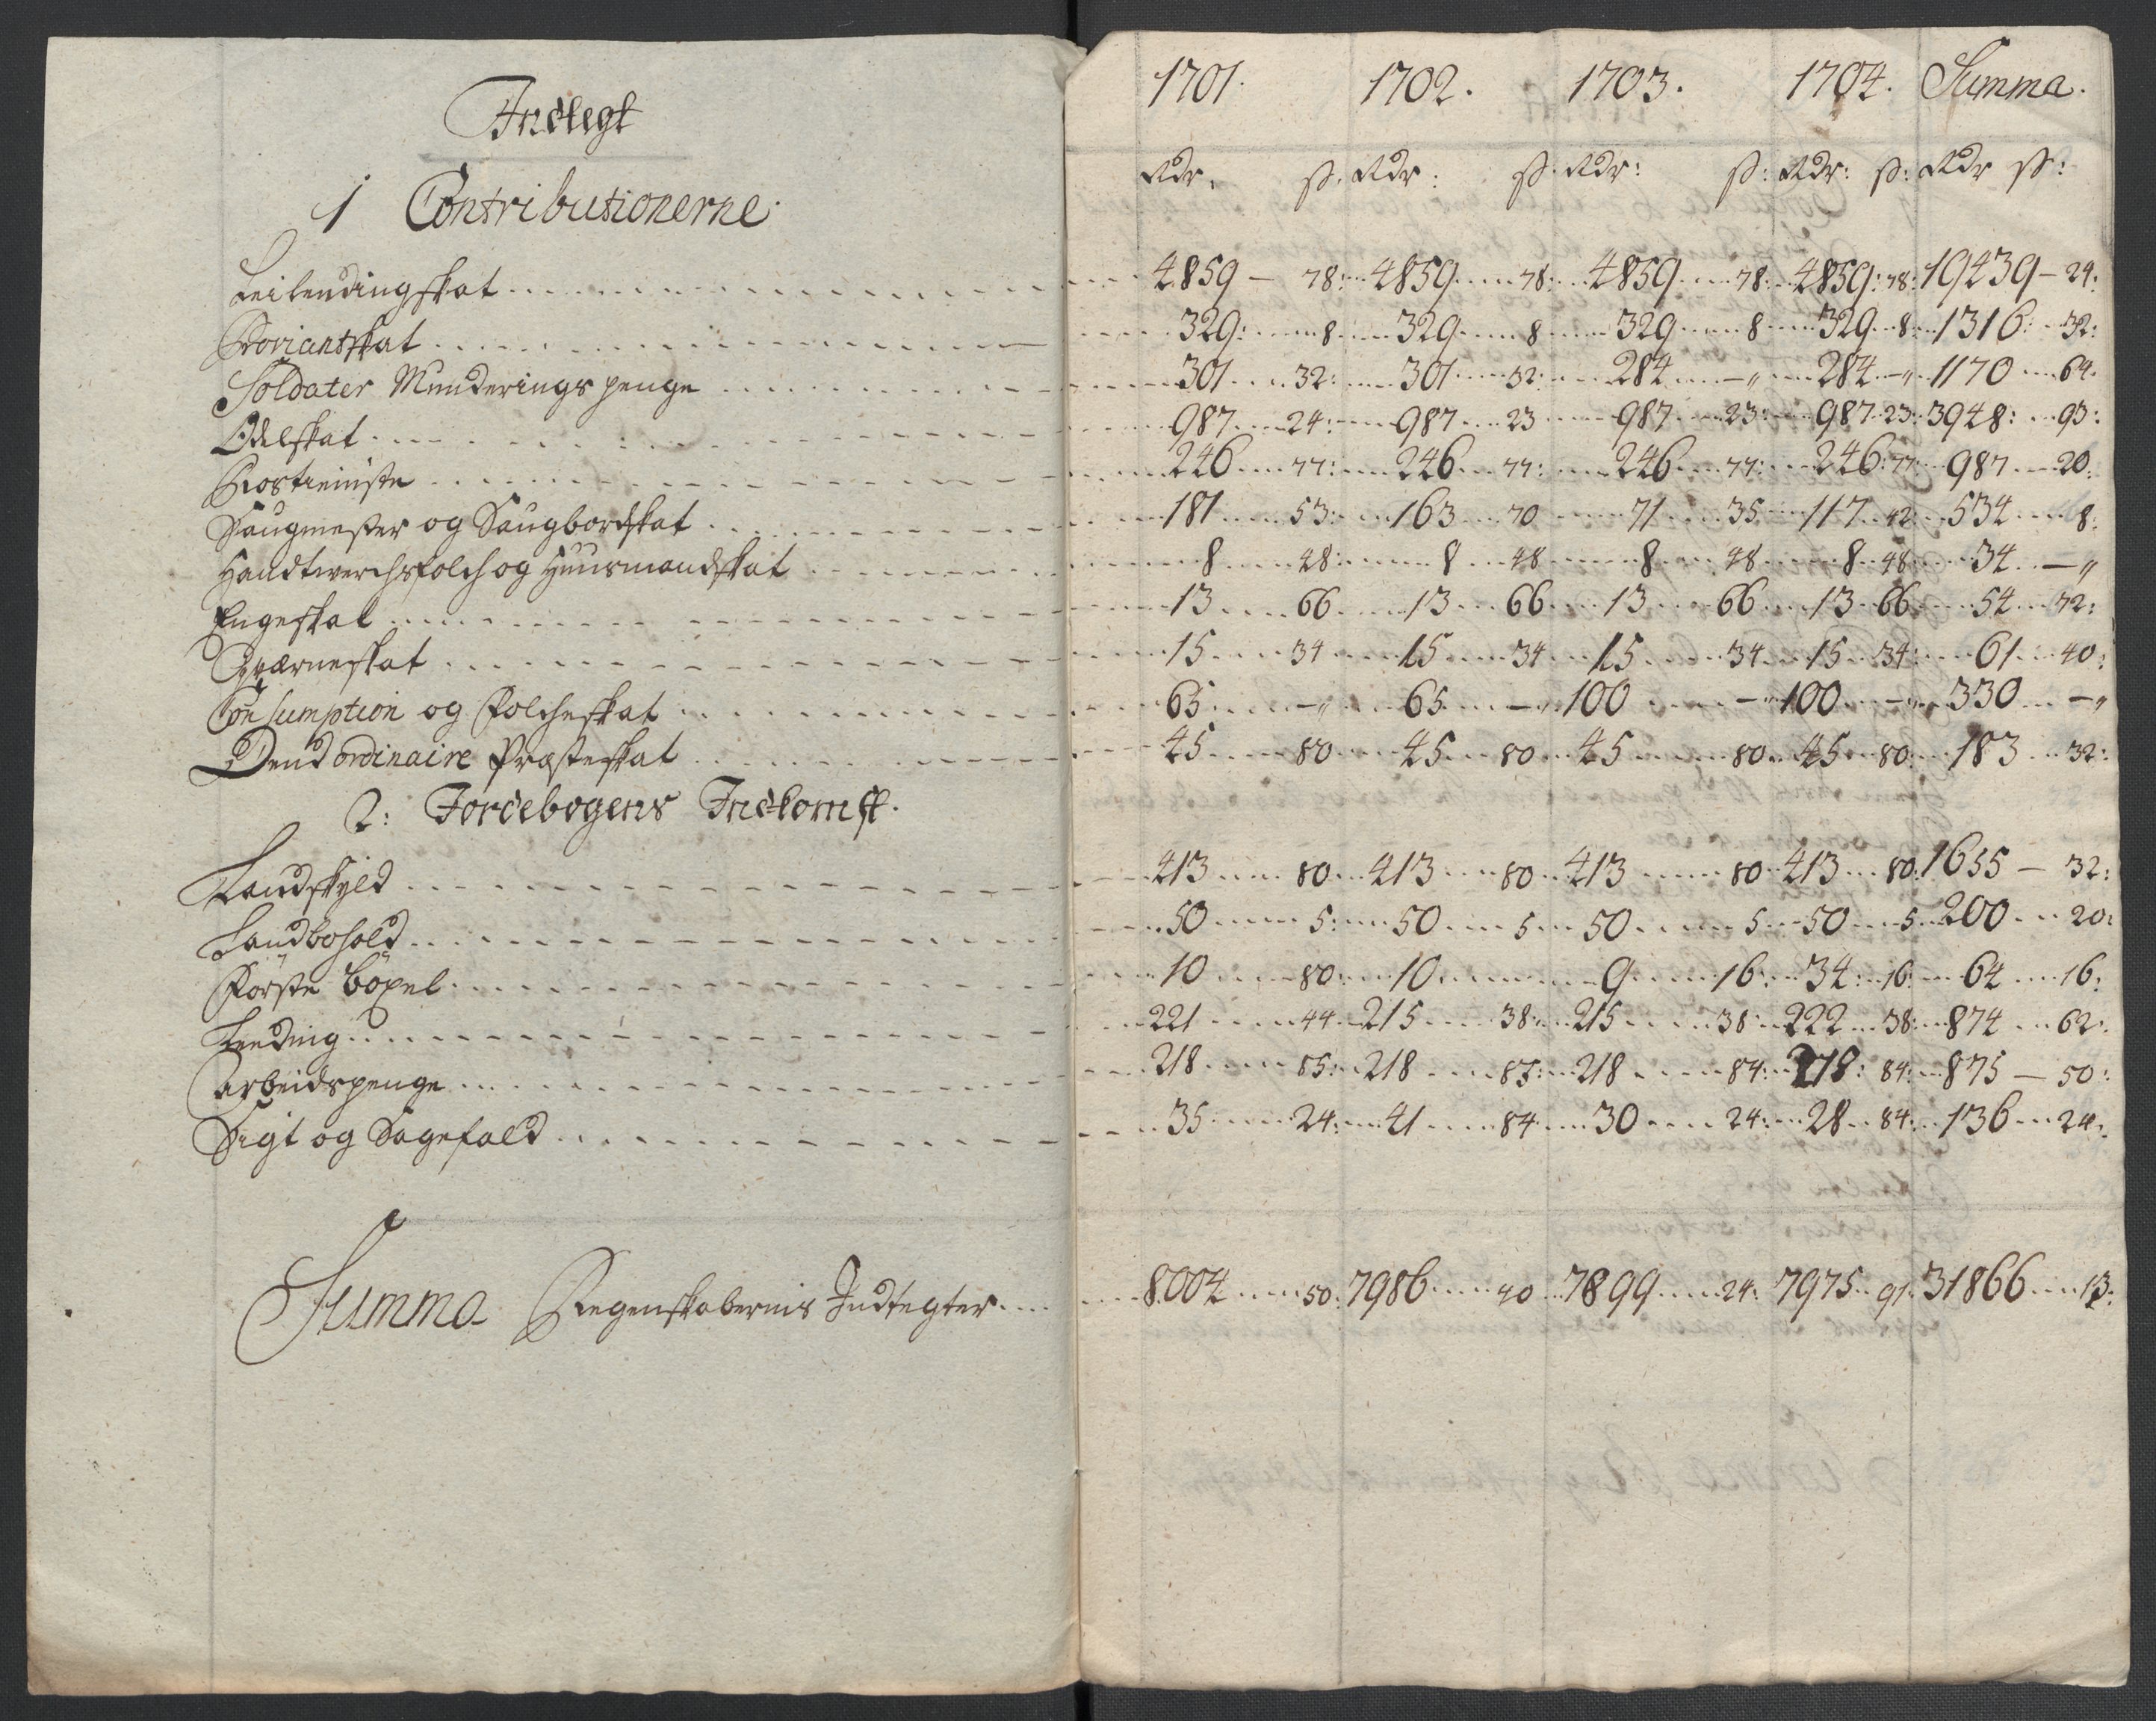 Indtegt
1 Contributionerne
1701. 1702. 1703. 1704. Summa.
Rdr. ß. Rdr: ß. Rdr: ß: Rdr: ß: Rdr ß:
Leilendingskat 4859 78: 4859 78: 4859 78: 4859: 78: 19439 24:
Proviantskat 329: 8 329 8 329 8 329 8: 1316: 32:
Soldater Munderings penge 301 32: 301 32: 284 — 284 — 1170 64.
Odelskat 987 24: 987 23 987 23: 987 23: 3948: 93:
Rostieniste 246 77: 246 77: 246 77: 246: 77 987 20:
Saugmester og Saugbordskat 181 53: 163 70 71 35 117 42 534 8:
Handtwerchsfolch og Huusmandskat 8 48: 8 48 8 48 8 48: 34 —
Engeskat 13 66 13 66 13 66 13 66 54 72:
Qværneskat 15 34 15 34 15 34 15 34: 61 40:
Consumption og Folcheskat 65 — 65 — 100 — 100 — 330 —
Dend ordinaire Præsteskat 45 80 45 80 45 80 45 80: 183 32:
2: Jordebogens Indkomst.
Landskyld 413 80 413 80 413 80 413 80: 1655 — 32:
Landbohold 50 5: 50 5 50 5 50 5 200 20:
Förste Böxel 10 80: 10 9 16: 34: 16: 64 16:
Leeding 221 44 215 38: 215 38 222 38: 874 62:
Arbeidspenge 218 85: 218 85: 218 84: 218: 84: 875 — 50:
Sigt og Sagefald 35 24: 41 84 30 24: 28 84: 136 24:
Summa Regenskabernis Indtegter 8004 50: 7986 40 7899 24: 7975 91 31866 13: